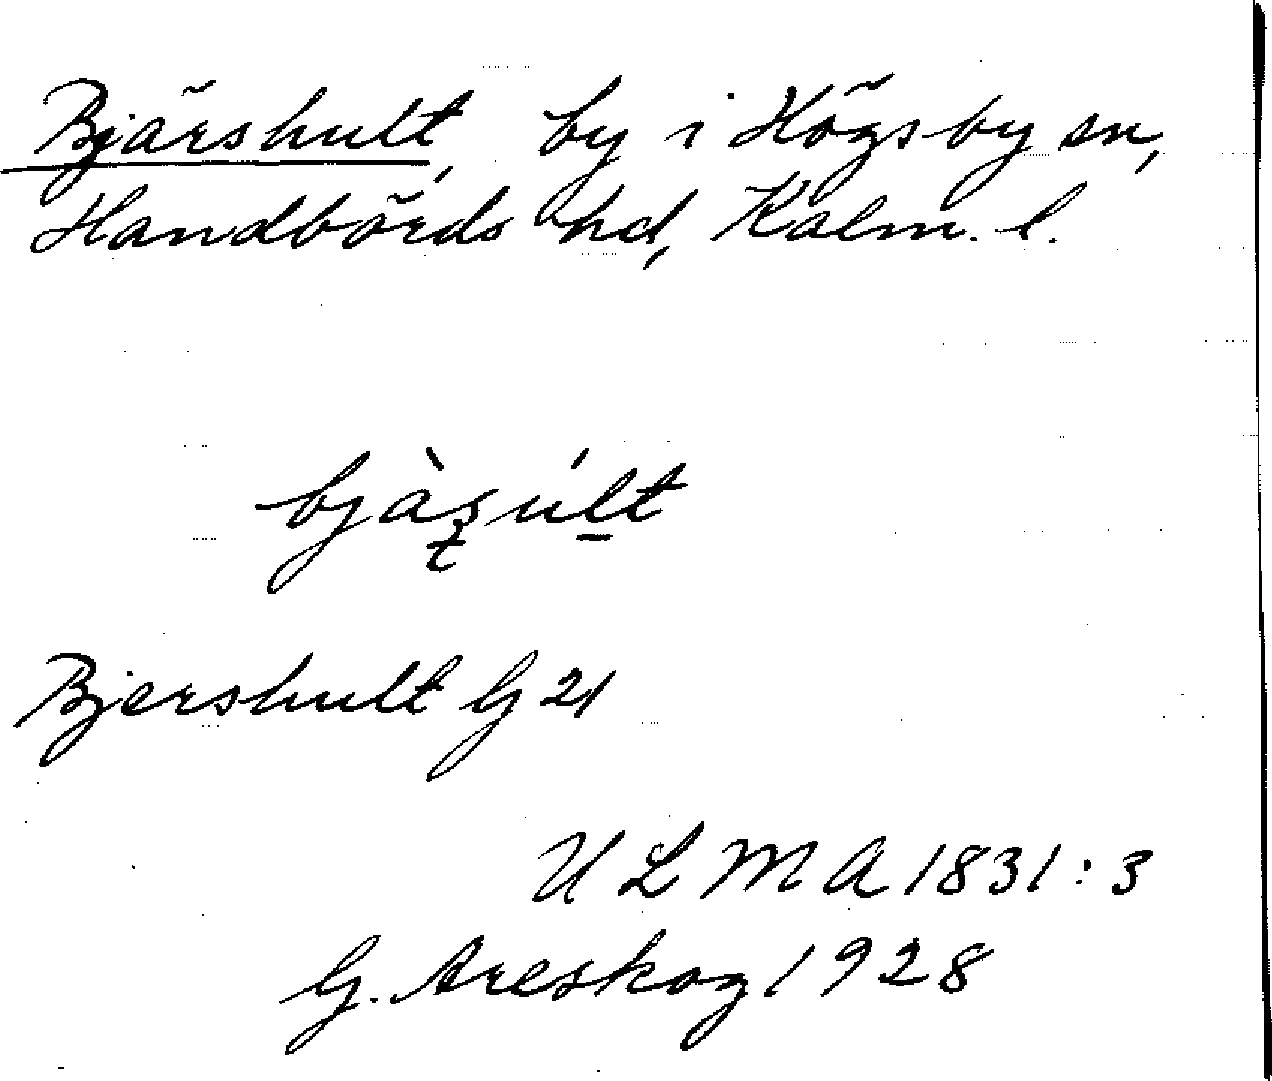 Bjärshult, by i Högsby sn,
Handbörds hd, Kalm. l.
Bjershult G 21
ULMA 1831:3
G. Areskog 1928